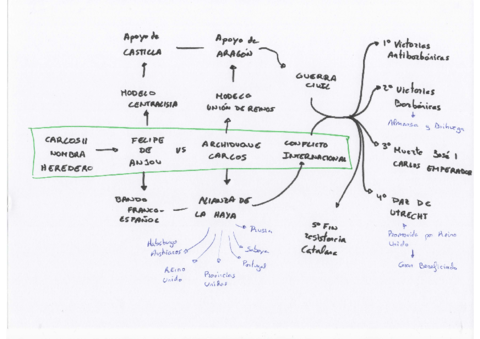 Apoyo de
CASTILLA
Apoyo de
ARAGÓN
GUERRA
CIVIL
MODELO
CENTRALISTA
MODELO
UNIÓN DE REINOS
CARLOS II
NOMBRA
HEREDERO
FELIPE
DE
ANJOU
VS
ARCHIDUQUE
CARLOS
CONFLICTO
INTERNACIONAL
BANDO
FRANCO-
ESPAÑOL
ALIANZA DE
LA HAYA
Austriacos
Reino
Unido
Provincias
Unidas
Portugal
Saboya
Prusia
1º Victorias
Antiborbónicas
2º Victorias
Borbónicas
Almansa y Brihuega
3º Muerte José I
CARLOS EMPERADOR
4º PAZ DE
UTRECHT
Promovida por Reino
Unido
Gran Beneficiado
5º FIN
resistencia
Catalana